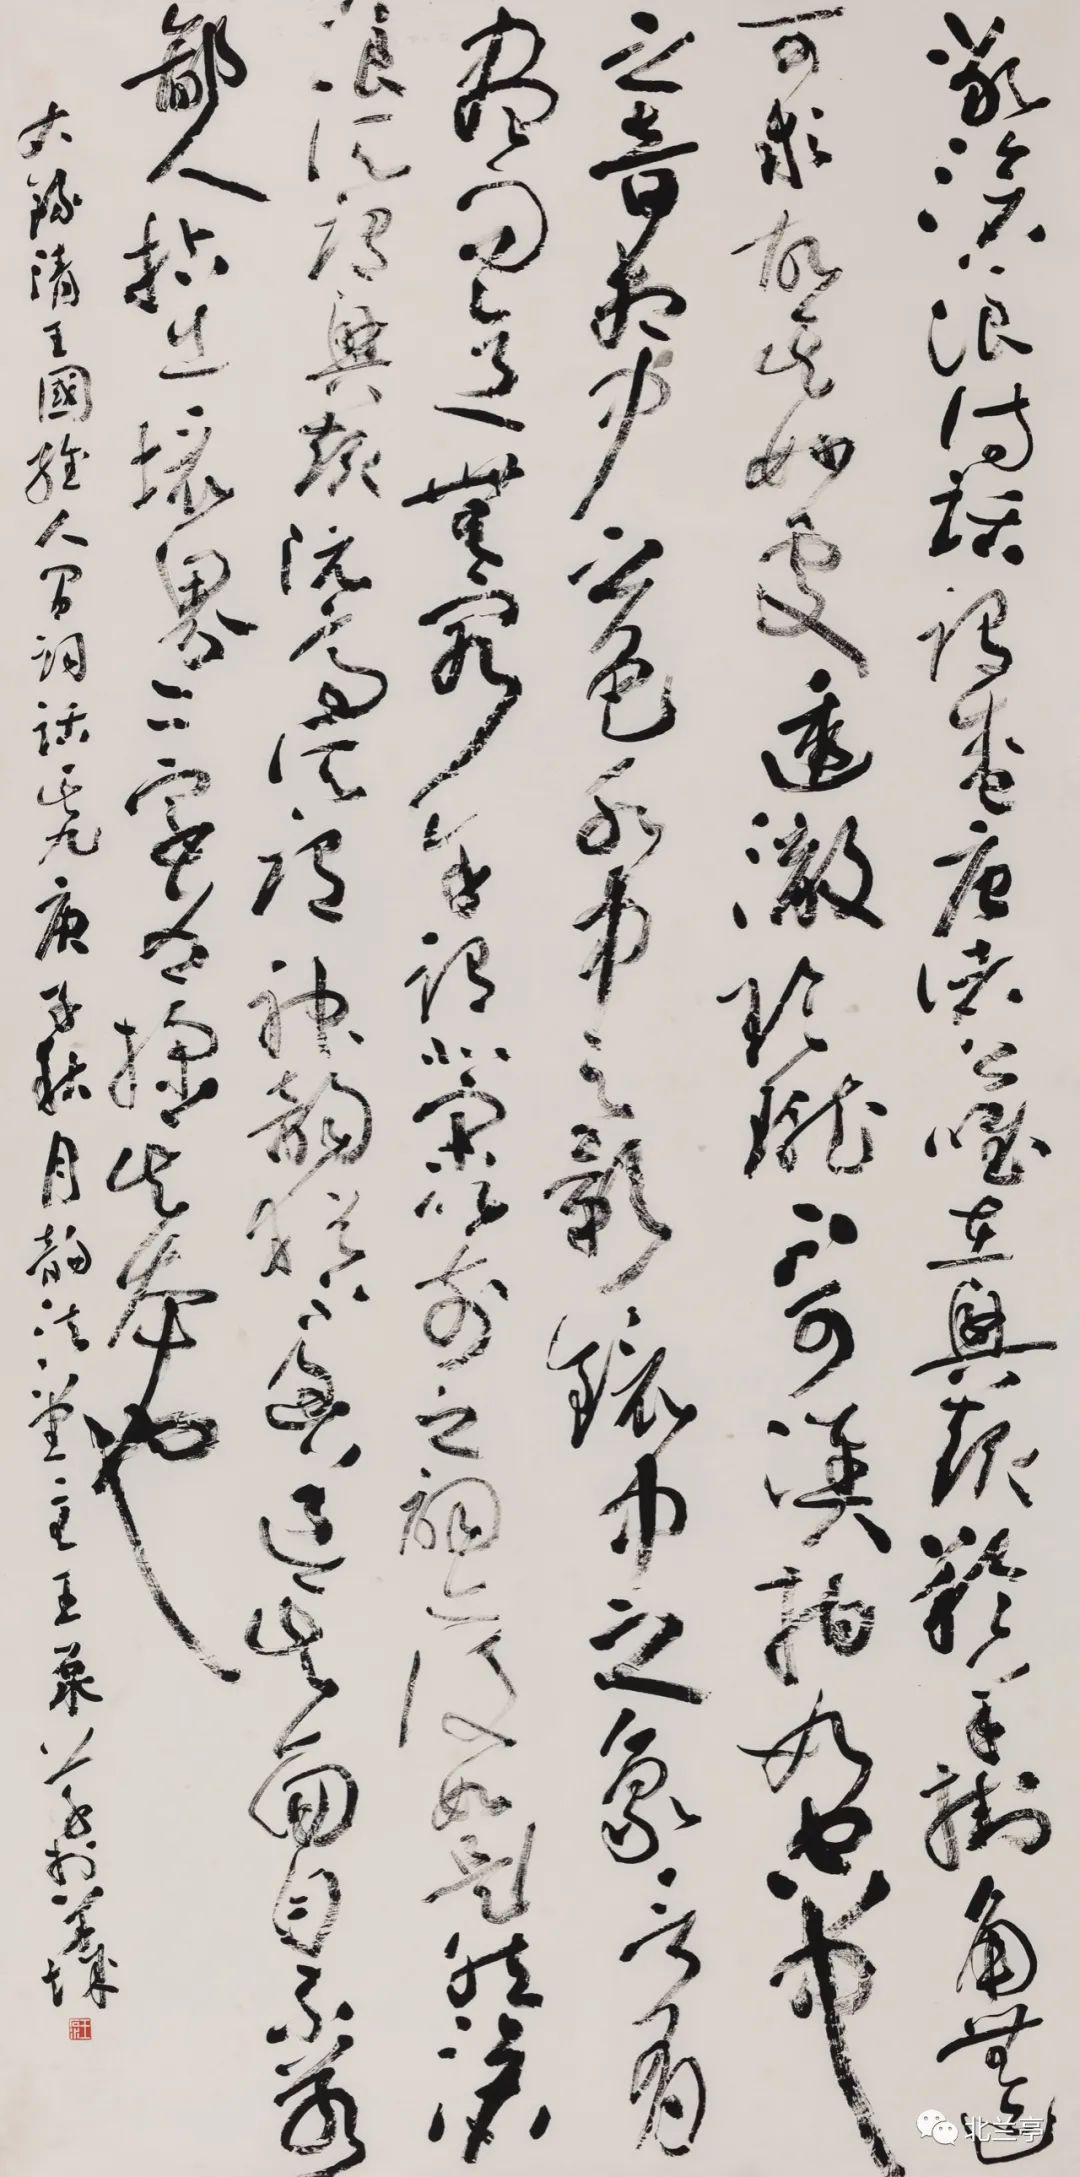 嚴滄浪詩話謂盛唐諸公唯在興趣羚羊掛角無迹
可求故其妙處透澈玲瓏不可湊拍如空中
之音相中之色水中之影鏡中之象言有
盡而意無窮余謂北宋以前之詞亦復如是然滄
浪所謂興趣阮亭所謂神韻猶不過道其面目不若
鄙人拈出境界二字為探其本也
右錄清王國維人間詞話其九庚子秋月韻堂主王於蓉城
北兰亭